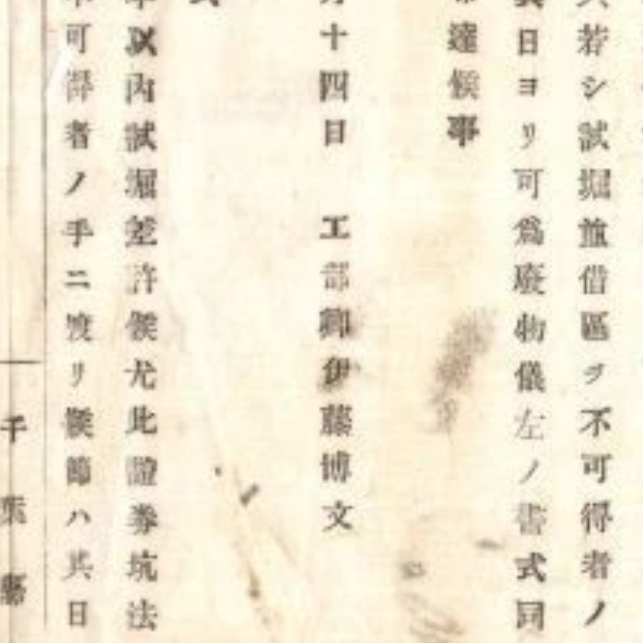 若シ試堀並借區ヲ不可得者ノ
日ヨリ可爲廢物儀左ノ書式同
達候事
十四日 工部卿伊藤博文
以内試堀差許候尤此證券坑法
可得者ノ手ニ渡リ候節ハ其日
千葉縣